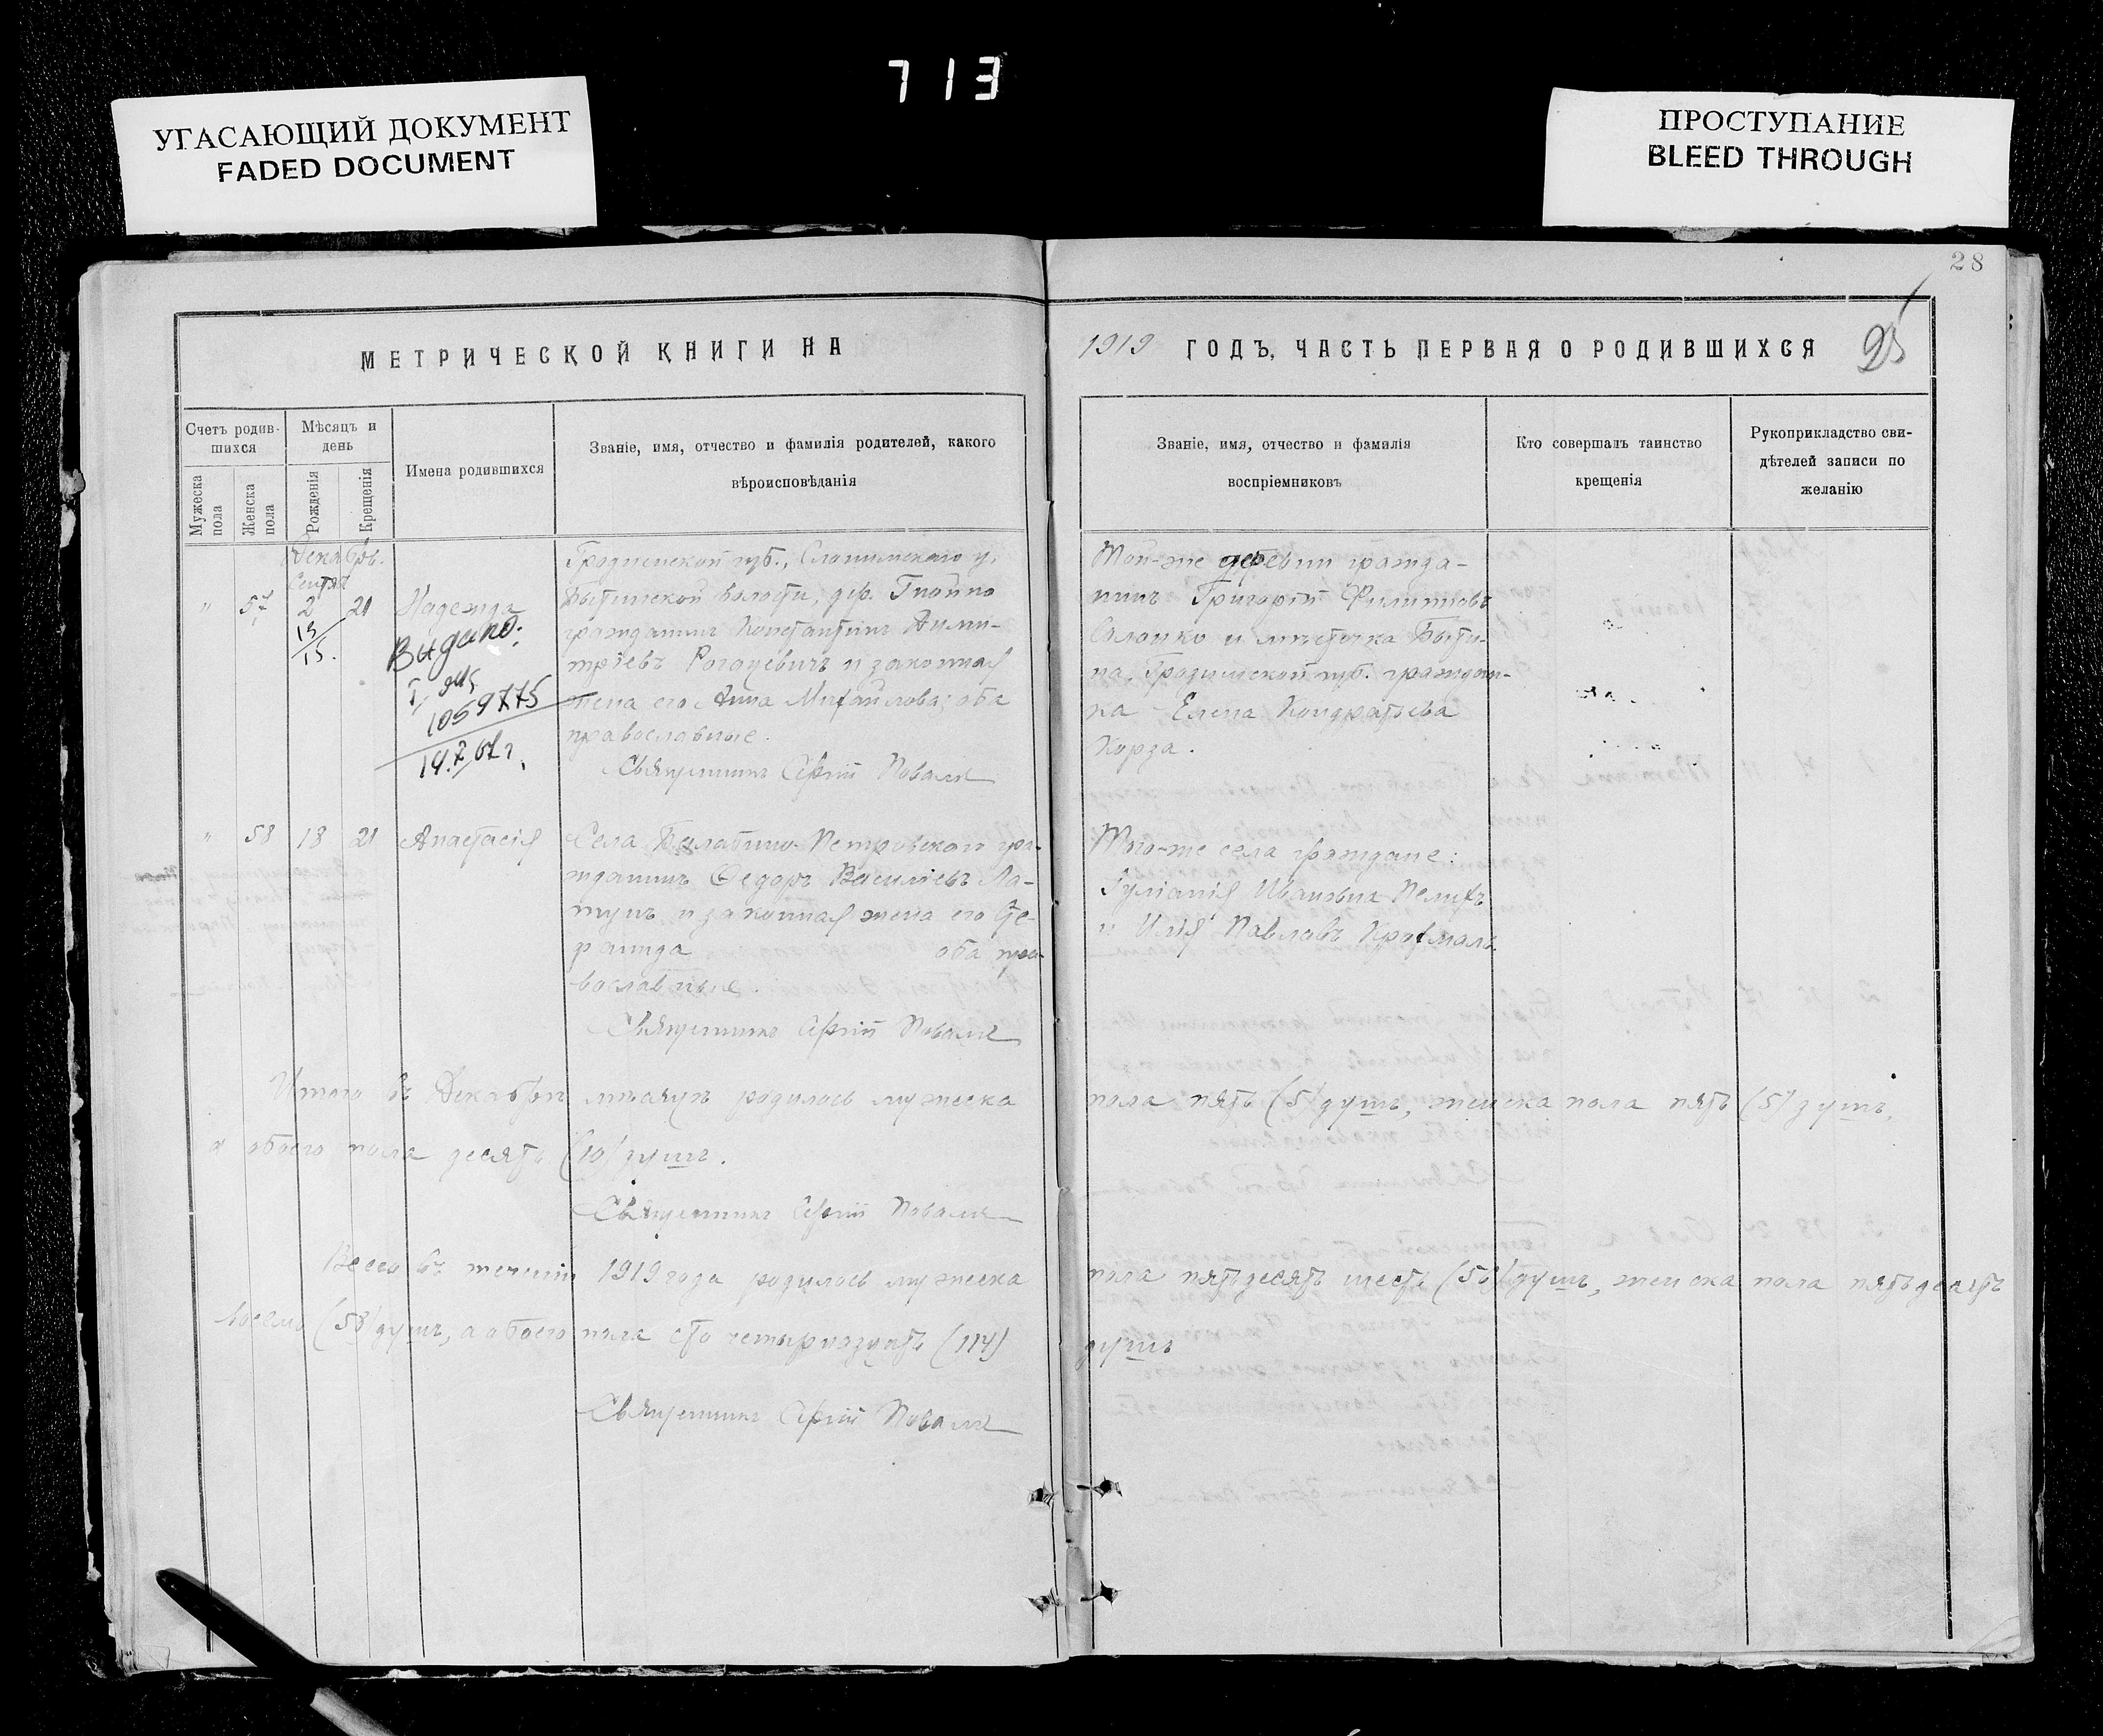 713
УГАСАЮЩИЙ ДОКУМЕНТ
FADED DOCUMENT
ПРОСТУПАНИЕ
BLEED THROUGH
28
25
МЕТРИЧЕСКОЙ КНИГИ НА
1919 ГОДЪ, ЧАСТЬ ПЕРВАЯ О РОДИВШИХСЯ
Счетъ родив-
шихся
Мужеска пола
Женска пола
Мѣсяцъ и
день
Рожденія
Крещенія
Имена родившихся
Званіе, имя, отчество и фамилія родителей, какого
вѣроисповѣданія
Званіе, имя, отчество и фамилія
воспріемниковъ
Кто совершалъ таинство
крещенія
Рукоприкладство сви-
дѣтелей записи по
желанію
Декабрь.
Сентяб
" 57 2 21 Надежда
15.
Видано:
1059775
14.7.61г.
Гродненской губ., Слонимскаго у.
Бытенской волости, дер. Гнойно
гражданинъ Константинъ Дими-
тріевъ Рогацевичъ и законная
жена его Анна Михайлова; оба
православные.
Священникъ Сергій Поваля
Той-же деревни гражда-
нинъ Григорій Филиповъ
Салонко и мѣстечка Быте-
на, Гродненской губ. граждан-
ка Елена Кондратьева
Корза.
" 58 18 21 Анастасія
Села Балабино-Петровскаго гра-
жданинъ Ѳедоръ Василіевъ Ла-
тунъ и законная жена его Се-
рафима оба пра-
вославные.
Священникъ Сергій Поваля
Того-же села граждане:
Іуліанія Иванова Пелихъ
и Илія Павловъ Крохмаль.
Итого въ Декабрѣ мѣсяцѣ родилось мужеска пола пять (5) душъ, женска пола пять (5) душъ,
а обоего пола десять (10) душъ.
Священникъ Сергій Поваля
Всего въ теченіи 1919 года родилось мужеска пола пятьдесятъ шесть (56) душъ, женска пола пятьдесятъ
восемь (58) душъ, а обоего пола сто четырнадцать (114) душъ
Священникъ Сергій Поваля